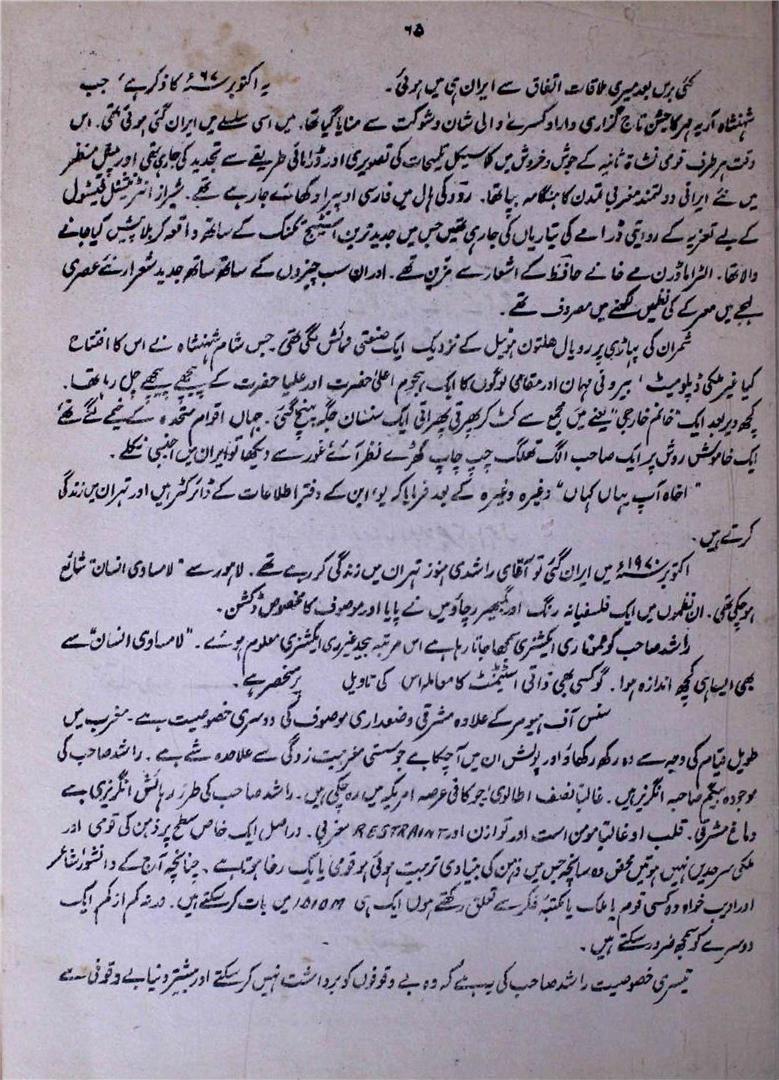 ۶۵
کئی برس بعد میری ملاقات اتفاق سے ایران ہی میں ہوئی۔ یہ اکتوبر ۶۷ء کا ذکر ہے، جب
شہنشاہ آریہ مہر کا جشن تاج گزاری دارا و کسرےٰ والی شان و شوکت سے منایا گیا تھا۔ میں اسی سلسلے میں ایران گئی ہوئی تھی۔ اس
وقت ہر طرف قومی نشاۃ ثانیہ کے جوش و خروش میں کلاسیکل تلمیحات کی تصویری اور ڈرامائی طریقے سے تجدید کی جا رہی تھی اور پس منظر
میں نئے ایرانی دولتمند مغربی تمدن کا ہنگامہ بپا تھا۔ رودکی ہال میں فارسی اوپیرا دکھائے جا رہے تھے۔ شیراز انٹرنیشنل فیسٹول
کے لیے تعزیہ کے روایتی ڈرامے کی تیاریاں کی جا رہی تھیں جس میں جدید ترین اسٹیج تکنک کے ساتھ واقعہ کربلا پیش کیا جانے
والا تھا۔ الٹرا ماڈرن مے خانے حافظ کے اشعار سے مزین تھے۔ اور ان سب چیزوں کے ساتھ ساتھ جدید شعرا نئے عصری
لہجے میں معرکے کی نظمیں لکھنے میں مصروف تھے۔
شمران کی پہاڑی پر رویال ھلتون ہوٹل کے نزدیک ایک صنعتی نمائش لگی تھی۔ جس شام شہنشاہ نے اس کا افتتاح
کیا غیر ملکی ڈپلومیٹ، بیرونی مہمان اور مقامی لوگوں کا ایک ہجوم اعلیٰ حضرت اور علیا حضرت کے پیچھے پیچھے چل رہا تھا۔
کچھ دیر بعد ایک "خانم خارجی" یعنے میں مجمع سے کٹ کر پھرتی پھراتی ایک سنسان جگہ پہنچ گئی۔ جہاں اقوام متحدہ کے خیمے لگے تھے
ایک خاموش روش پر ایک صاحب الگ تھلگ چپ چاپ کھڑے نظر آئے غور سے دیکھا تو ایران میں اجنبی نکلے۔
"اخاہ آپ یہاں کہاں" وغیرہ وغیرہ کے بعد فرمایا کہ یو این کے دفتر اطلاعات کے ڈائرکٹر ہیں اور تہران میں زندگی
کرتے ہیں۔
اکتوبر ۱۹۷۰ء میں ایران گئی تو آقای راشدی ہنوز تہران میں زندگی کر رہے تھے۔ لاہور سے "لا مساوی انسان" شائع
ہو چکی تھی۔ ان نظموں میں ایک فلسفیانہ رنگ اور گمبھیر رچاؤ میں نے پایا اور موصوف کا مخصوص ڈکشن۔
راشد صاحب کو ری ایکشنری سمجھا جاتا رہا ہے اس مرتبہ بیحد غیر ری ایکشنری معلوم ہوئے۔ "لا مساوی انسان" سے
بھی ایسا ہی کچھ اندازہ ہوا۔ گو کسی بھی ذاتی اسٹیمنٹ کا معاملہ اس کی تاویل پر منحصر ہے۔
سنس آف ہیومر کے علاوہ مشرقی وضعداری موصوف کی دوسری خصوصیت ہے۔ مغرب میں
طویل قیام کی وجہ سے وہ رکھ رکھاؤ اور پولش ان میں آ چکا ہے جو سستی مغربیت زدگی سے علاحدہ شے ہے۔ راشد صاحب کی
موجودہ بیگم صاحبہ انگریز ہیں۔ غالباً نصف اطالوی، جو کافی عرصہ امریکہ میں رہ چکی ہیں۔ راشد صاحب کی طرز رہائش انگریزی ہے
دماغ مشرقی۔ قلب او غالباً مومن است، اور توازن اور RESTRAINT مغربی۔ دراصل ایک خاص سطح پر ذہن کی قومی اور
ملکی سرحدیں نہیں ہوتیں محض وہ سانچہ جس میں ذہن کی بنیادی تربیت ہوئی ہو قومی یا یک رخا ہوتا ہے۔ چنانچہ آج کے دانشور شاعر
اور ادیب خواہ وہ کسی قوم یا ملک یا مکتبۂ فکر سے تعلق رکھتے ہوں ایک ہی IDIOM میں بات کر سکتے ہیں۔ ورنہ کم از کم ایک
دوسرے کو سمجھ ضرور سکتے ہیں۔
تیسری خصوصیت راشد صاحب کی یہ ہے کہ وہ بے وقوفوں کو برداشت نہیں کر سکتے اور بیشتر دنیا بے وقوفی سے